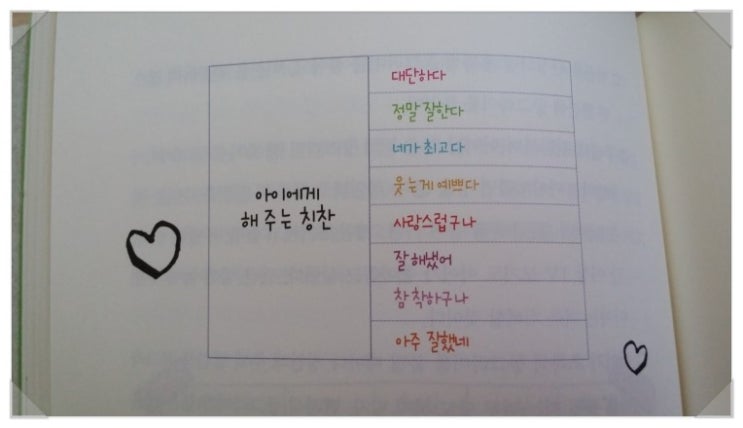 아이에게
해 주는 칭찬
대단하다
정말 잘한다
네가 최고다
웃는게 예쁘다
사랑스럽구나
잘 해냈어
참 착하구나
아주 잘했네